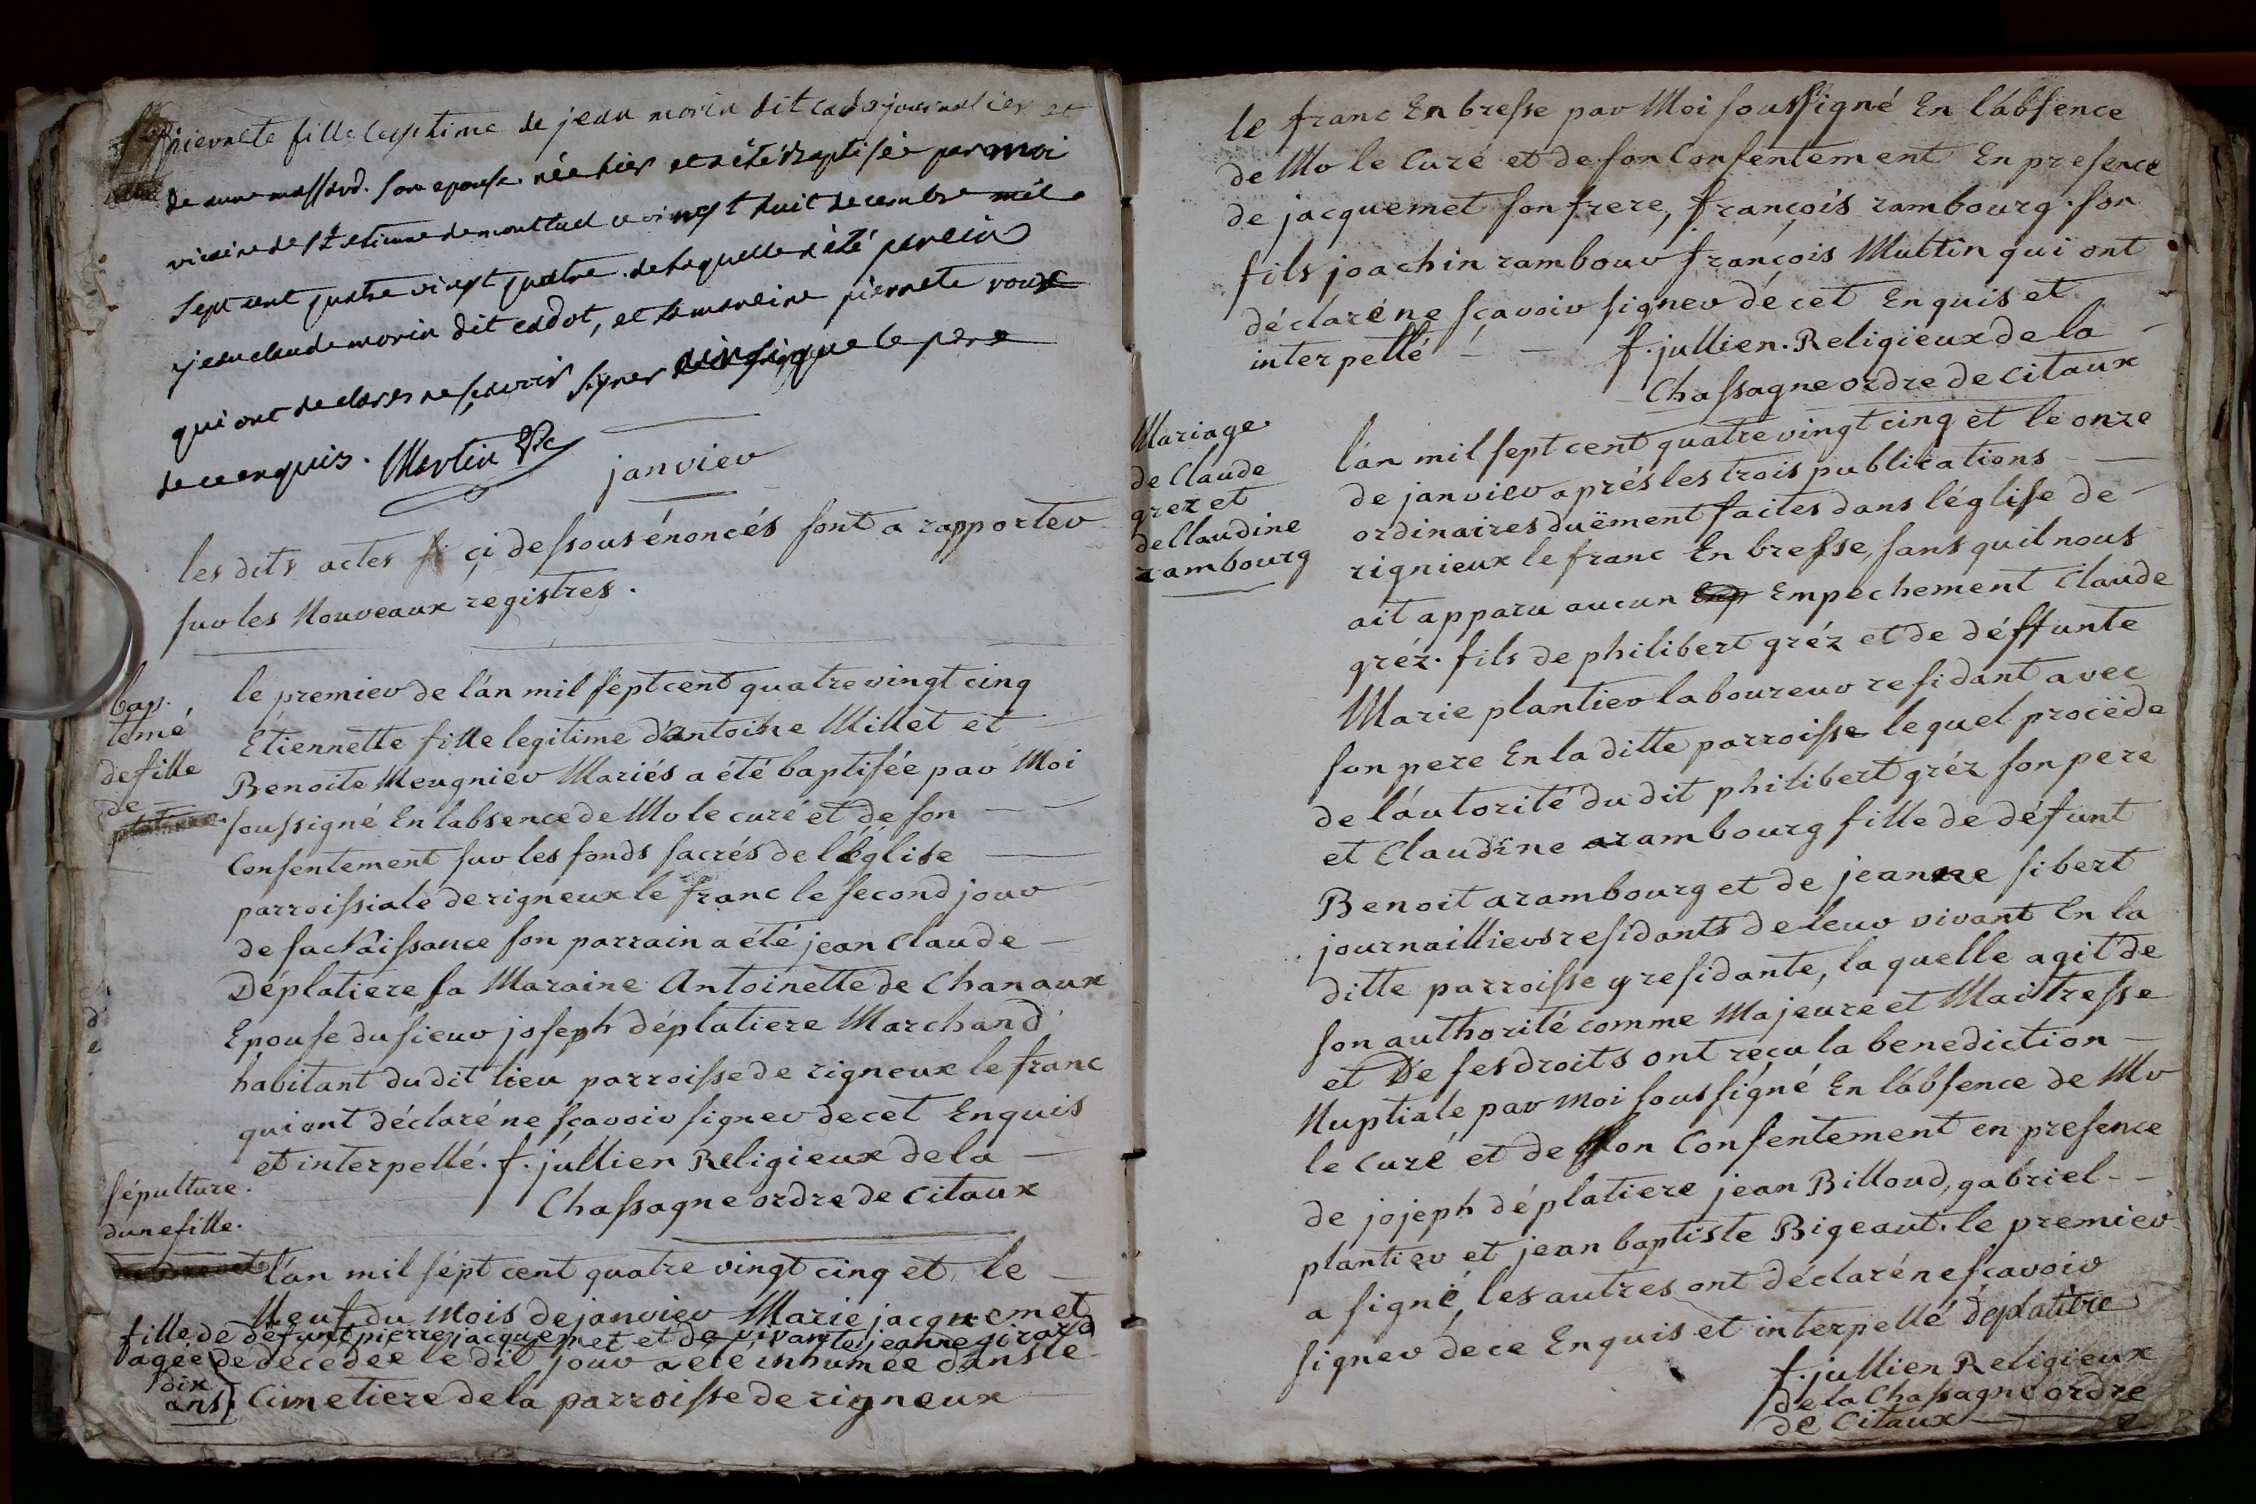 pierrete fille legitime de jean morin dit cado journalier et
de anne massard. son epouse. née hier et a été baptisée par moi
vicaire de st etienne de montluel ce vingt huit decembre mil
sept cent quatre vingt quatre. de laquelle a été parein
jean claude morin dit cadot, et la mareine pierrete roux
qui ont declarer ne sçavoir signer ainsi que le pere
de ce enquis. Martin Vic
janvier
les dits actes çi dessous énoncés sont a rapporter
sur les Nouveaux registres.
bap.
temé
de fille
de
le premier de l'an mil sept cent quatre vingt cinq
Étiennette fille legitime d'antoine Millet et
Benoite Meugnier Mariés a été baptisée par Moi
soussigné En l'absence de Mr le curé et de son
Consentement sur les fonds sacrés de l'église
parroissiale de rigneux le franc le second jour
de sa naissance son parrain a été jean Claude
Déplatiere sa Maraine Antoinette de Chanaux
Epouse du sieur joseph déplatiere Marchand
habitant du dit lieu parroisse de rigneux le franc
qui ont déclaré ne sçavoir signer de cet Enquis
et interpellé. f. jullien Religieux de la
Chassagne ordre de Citaux
sépulture.
dune fille.
l'an mil sépt cent quatre vingt cinq et le
Neuf du Mois de janvier Marie jacquemet
fille de défunt pierre jacquemet et de vivante jeanne girard
agée de dix ans
decedée le dit jour a été inhumée dans le
Cimetiere de la parroisse de rigneux
le franc En bresse par Moi soussigné En l'absence
de Mr le Curé et de son Consentement En presence
de jacquemet son frere, françois rambourg. son
fils joachin rambour françois Muttin qui ont
déclaré ne sçavoir signer de cet Enquis et
interpellé f. jullien. Religieux de la
Chassagne ordre de Citaux
Mariage
de Claude
grez et
de Claudine
rambourg
l'an mil sept cent quatre vingt cinq et le onze
de janvier aprés les trois publications
ordinaires duëment faites dans l'église de
rignieux le franc En bresse, sans quil nous
ait apparu aucun Emp Empechement Claude
gréz. fils de philibert gréz et de déffunte
Marie plantier laboureur residant avec
son pere En la ditte parroisse lequel procëde
de l'autorité du dit philibert gréz son pere
et Claudine arambourg fille de défunt
Benoit arambourg et de jeanne sibert
journailliers residants de leur vivant En la
ditte parroisse y residante, la quelle agit de
son authorité comme Majeure et Maitresse
et De ses droits ont reçu la benediction
Nuptiale par moi soussigné En l'absence de Mr
le Curé et de son Consentement en presence
de jojeph déplatiere jean Billoud, gabriel
plantier et jean baptiste Bigeaut. le premier
a signé, les autres ont déclaré ne sçavoir
signer de ce Enquis et interpellé deplatire
f. jullien Religieux
de la Chassagne ordre
de Citaux